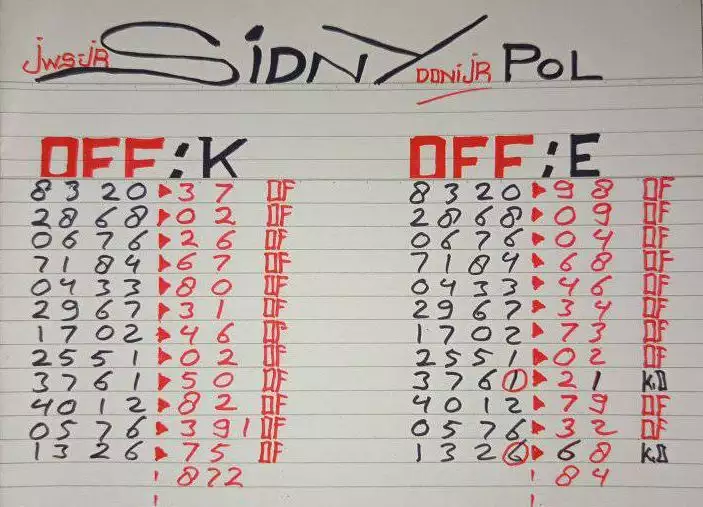 jws-JR SiDNY DONiJR PoL
OFF:K OFF:E
8320▶37 OF 8320▶98 OF
2868▶02 OF 2868▶09 OF
0676▶26 OF 0676▶04 OF
7184▶67 OF 7184▶68 OF
0433▶80 OF 0433▶46 OF
2967▶31 OF 2967▶34 OF
1702▶46 OF 1702▶73 OF
2551▶02 OF 2551▶02 OF
3761▶50 OF 3761▶21 K.D
4012▶82 OF 4012▶79 OF
0576▶391 OF 0576▶32 OF
1326▶75 OF 1326▶68 K.D
! 872 ! 84
! !